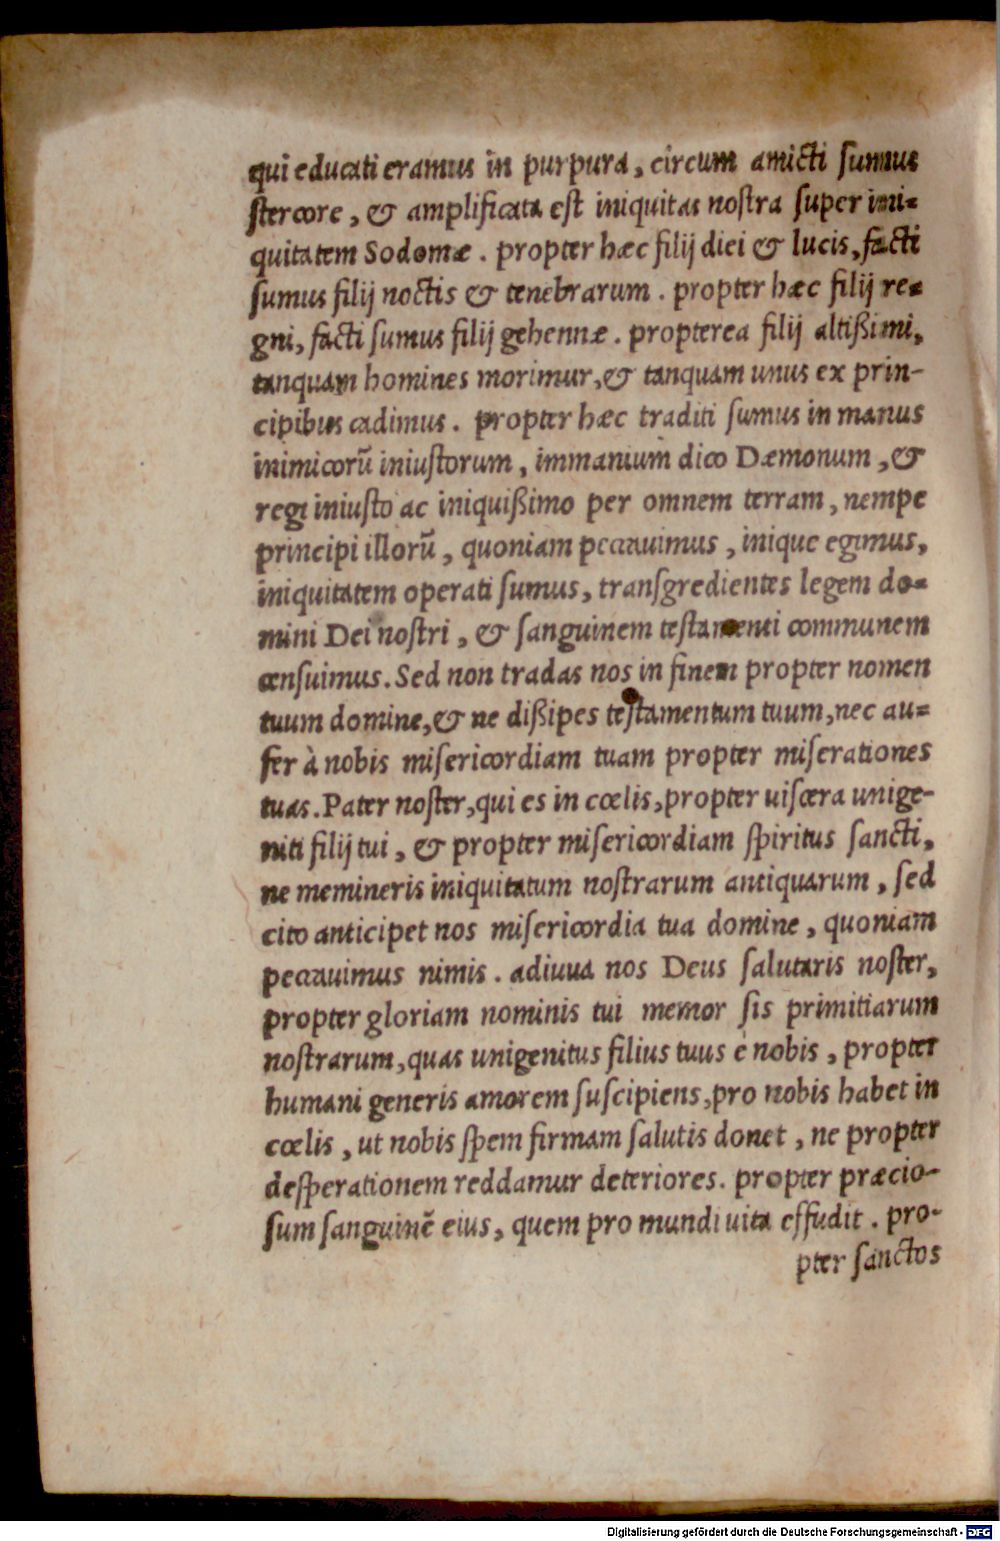 qui educati eramus in purpura, circum amicti sumus
stercore, & amplificata est iniquitas nostra super ini-
quitatem Sodomæ. propter hæc filij diei & lucis, facti
sumus filij noctis & tenebrarum. propter hæc filij re-
gni, facti sumus filij gehennæ. propterea filij altißimi,
tanquam homines morimur, & tanquam unus ex prin-
cipibus cadimus. propter hæc traditi sumus in manus
inimicorũ iniustorum, immanium dico Dæmonum, &
regi iniusto ac iniquißimo per omnem terram, nempe
principi illorũ, quoniam peccauimus, inique egimus,
iniquitatem operati sumus, transgredientes legem do-
mini Dei nostri, & sanguinem testamenti communem
censuimus. Sed non tradas nos in finem propter nomen
tuum domine, & ne dißipes testamentum tuum, nec au-
fer à nobis misericordiam tuam propter miserationes
tuas. Pater noster, qui es in cœlis, propter uiscera unige-
niti filij tui, & propter misericordiam spiritus sancti,
ne memineris iniquitatum nostrarum antiquarum, sed
cito anticipet nos misericordia tua domine, quoniam
peccauimus nimis. adiuua nos Deus salutaris noster,
propter gloriam nominis tui memor sis primitiarum
nostrarum, quas unigenitus filius tuus è nobis, propter
humani generis amorem suscipiens, pro nobis habet in
cœlis, ut nobis spem firmam salutis donet, ne propter
desperationem reddamur deteriores. propter præcio-
sum sanguinẽ eius, quem pro mundi uita effudit. pro-
pter sanctos
Digitalisierung gefördert durch die Deutsche Forschungsgemeinschaft - DFG